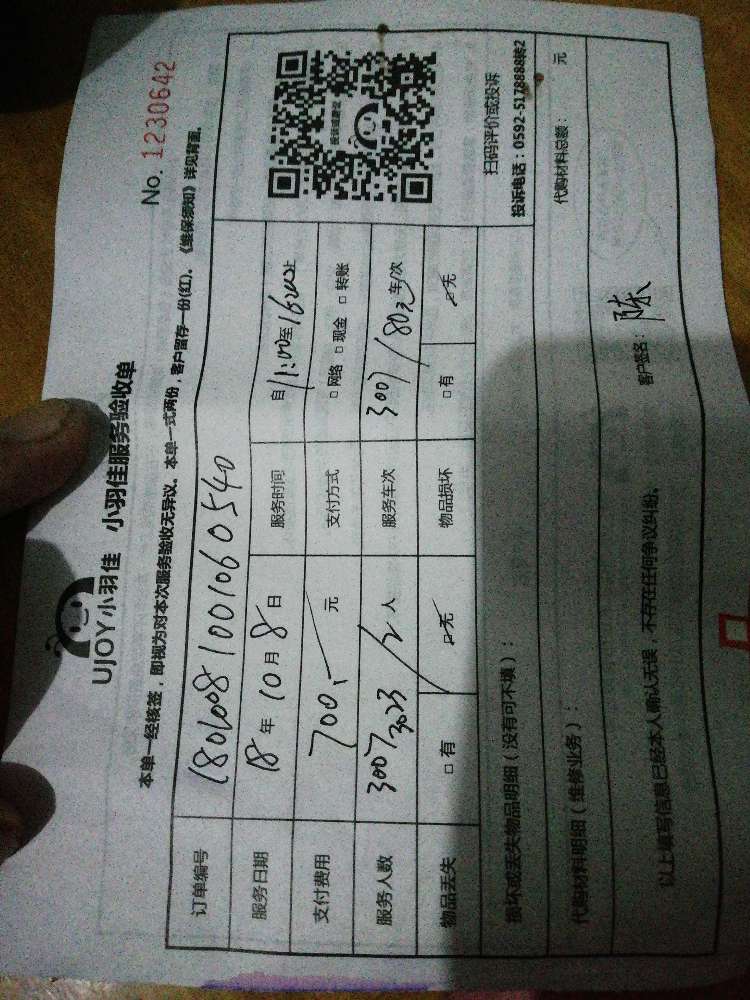 UJOY小羽佳 小羽佳服务验收单
No. 1230642
本单一经核签，即视为对本次服务验收无异议。本单一式两份，客户留存一份(红)。《维保须知》详见背面。
订单编号 18010081001060540
服务日期 18年10月8日 服务时间 自11:00至16:00止
支付费用 700,- 元 支付方式 □网络 □现金 □转账
服务人数 3007 3023 /2人 服务车次 3007/80元 车/次
物品丢失 □有 □无 物品损坏 □有 □无
扫码评价或投诉
投诉电话：0592-5178888转2
损坏或丢失物品明细（没有可不填）：
代购材料明细（维修业务）： 代购材料总额： 元
以上填写信息已经本人确认无误，不存在任何争议纠纷。 客户签名：陈